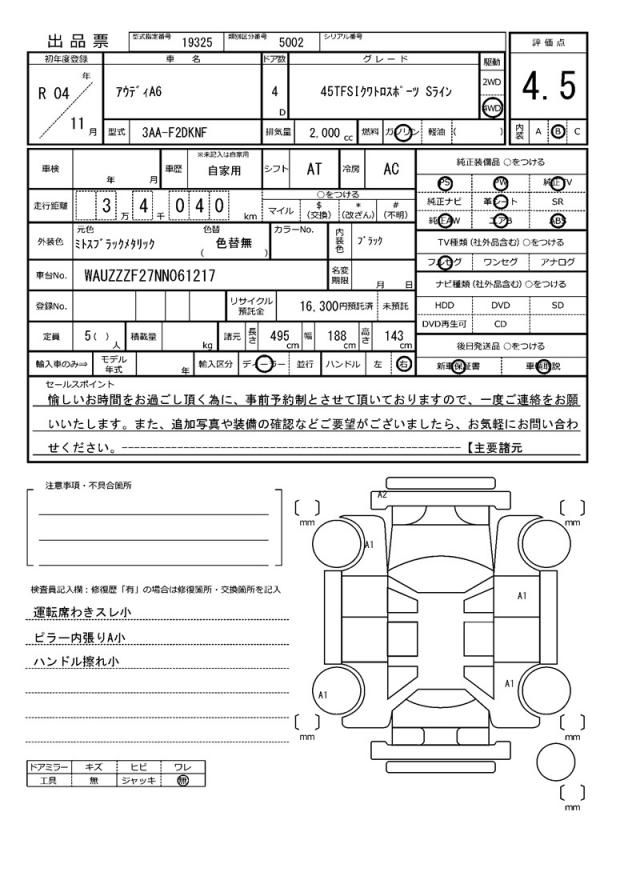 出品票 型式指定番号 19325 類別区分番号 5002 シリアル番号
評価点
4.5
初年度登録 車名 ドア数 グレード 駆動
R 04 年 11 月
アウディA6 4 D 45TFSIクワトロスポーツ Sライン 2WD 4WD
型式 3AA-F2DKNF 排気量 2,000 cc 燃料 ガソリン 軽油 ( ) 内装 A B C
車検 年 月 車歴 ※未記入は自家用 自家用 シフト AT 冷房 AC
純正装備品 ○をつける
PS PW 純正TV
純正ナビ 革シート SR
純正AW エアB ABS
走行距離 3 万 4 千 0 4 0 km ○をつける
マイル $ (交換) * (改ざん) # (不明)
外装色 元色 ミトスブラックメタリック 色替 色替無 ( ) カラーNo. 内装色 ブラック
TV種類 (社外品含む) ○をつける
フルセグ ワンセグ アナログ
車台No. WAUZZZF27NN061217 名変期限 月 日
ナビ種類 (社外品含む) ○をつける
HDD DVD SD
DVD再生可 CD
登録No. リサイクル預託金 16,300円預託済 未預託
定員 5( ) 人 積載量 kg 諸元 長さ 495 cm 幅 188 cm 高さ 143 cm
後日発送品 ○をつける
新車保証書 車輌取説
輸入車のみ⇒ モデル年式 年 輸入区分 ディーラー 並行 ハンドル 左 右
セールスポイント
愉しいお時間をお過ごし頂く為に、事前予約制とさせて頂いておりますので、一度ご連絡をお願
いいたします。また、追加写真や装備の確認などご要望がございましたら、お気軽にお問い合わ
せください。----------------------------------------------------【主要諸元
注意事項・不具合箇所
検査員記入欄：修復歴「有」の場合は修復箇所・交換箇所を記入
運転席わきスレ小
ピラー内張りA小
ハンドル擦れ小
ドアミラー キズ ヒビ ワレ
工具 無 ジャッキ 無
A2
[ ] mm [ ] mm
A1
A1
A1
A1
[ ] mm [ ] mm
[ ] mm